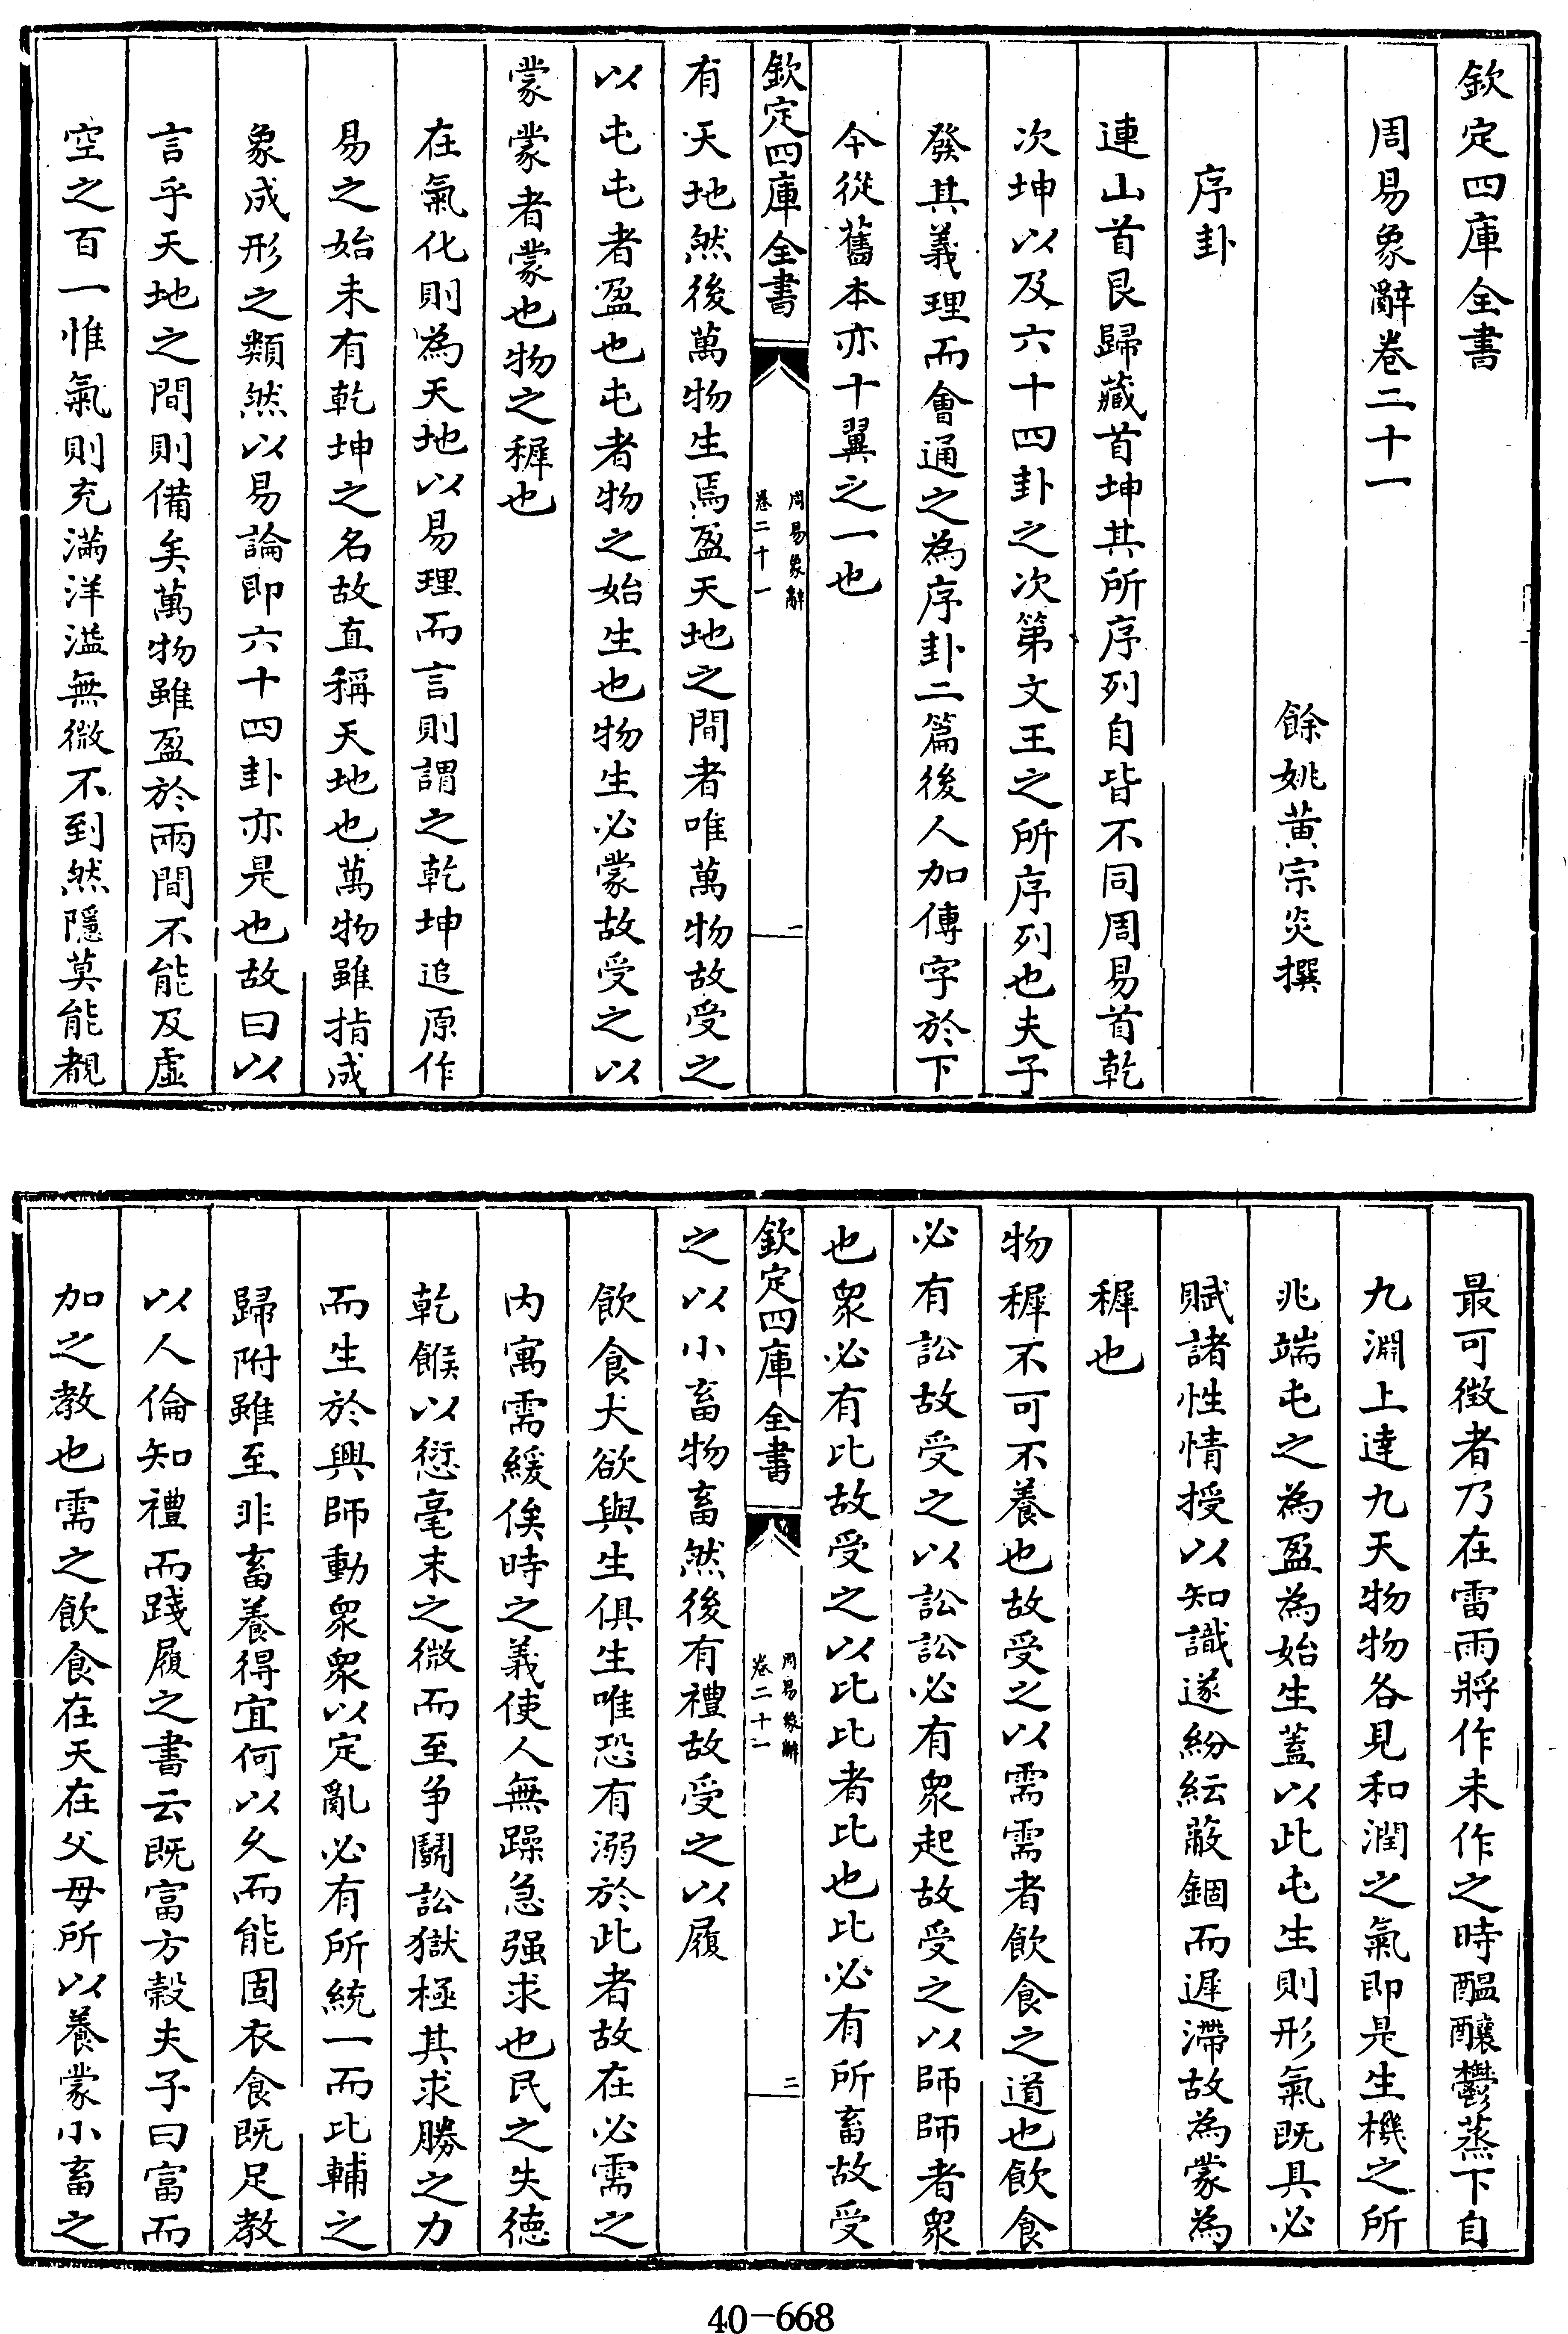 欽定四庫全書
周易象辭卷二十一
餘姚黃宗炎撰
序卦
連山首艮歸藏首坤其所序列自皆不同周易首乾
次坤以及六十四卦之次第文王之所序列也夫子
發其義理而會通之為序卦二篇後人加傳字於下
今從舊本亦十翼之一也
欽定四庫全書
周易象辭
卷二十一
一
有天地然後萬物生焉盈天地之間者唯萬物故受之
以屯屯者盈也屯者物之始生也物生必蒙故受之以
蒙蒙者蒙也物之穉也
在氣化則為天地以易理而言則謂之乾坤追原作
易之始未有乾坤之名故直稱天地也萬物雖指成
象成形之類然以易論即六十四卦亦是也故曰以
言乎天地之間則備矣萬物雖盈於兩間不能及虛
空之百一惟氣則充滿洋溢無微不到然隱莫能覩
最可徵者乃在雷雨將作未作之時醖釀鬱蒸下自
九淵上達九天物物各見和潤之氣即是生機之所
兆端屯之為盈為始生蓋以此屯生則形氣既具必
賦諸性情授以知識遂紛紜蔽錮而遲滯故為蒙為
穉也
物穉不可不養也故受之以需需者飲食之道也飲食
必有訟故受之以訟訟必有衆起故受之以師師者衆
也衆必有比故受之以比比者比也比必有所畜故受
欽定四庫全書
周易象辭
卷二十一
二
之以小畜物畜然後有禮故受之以履
飲食大欲與生俱生唯恐有溺於此者故在必需之
內寓需緩俟時之義使人無躁急强求也民之失德
乾餱以愆毫末之微而至爭鬭訟獄極其求勝之力
而生於興師動衆衆以定亂必有所統一而比輔之
歸附雖至非畜養得宜何以久而能固衣食既足教
以人倫知禮而踐履之書云既富方穀夫子曰富而
加之教也需之飲食在天在父母所以養蒙小畜之
40-668